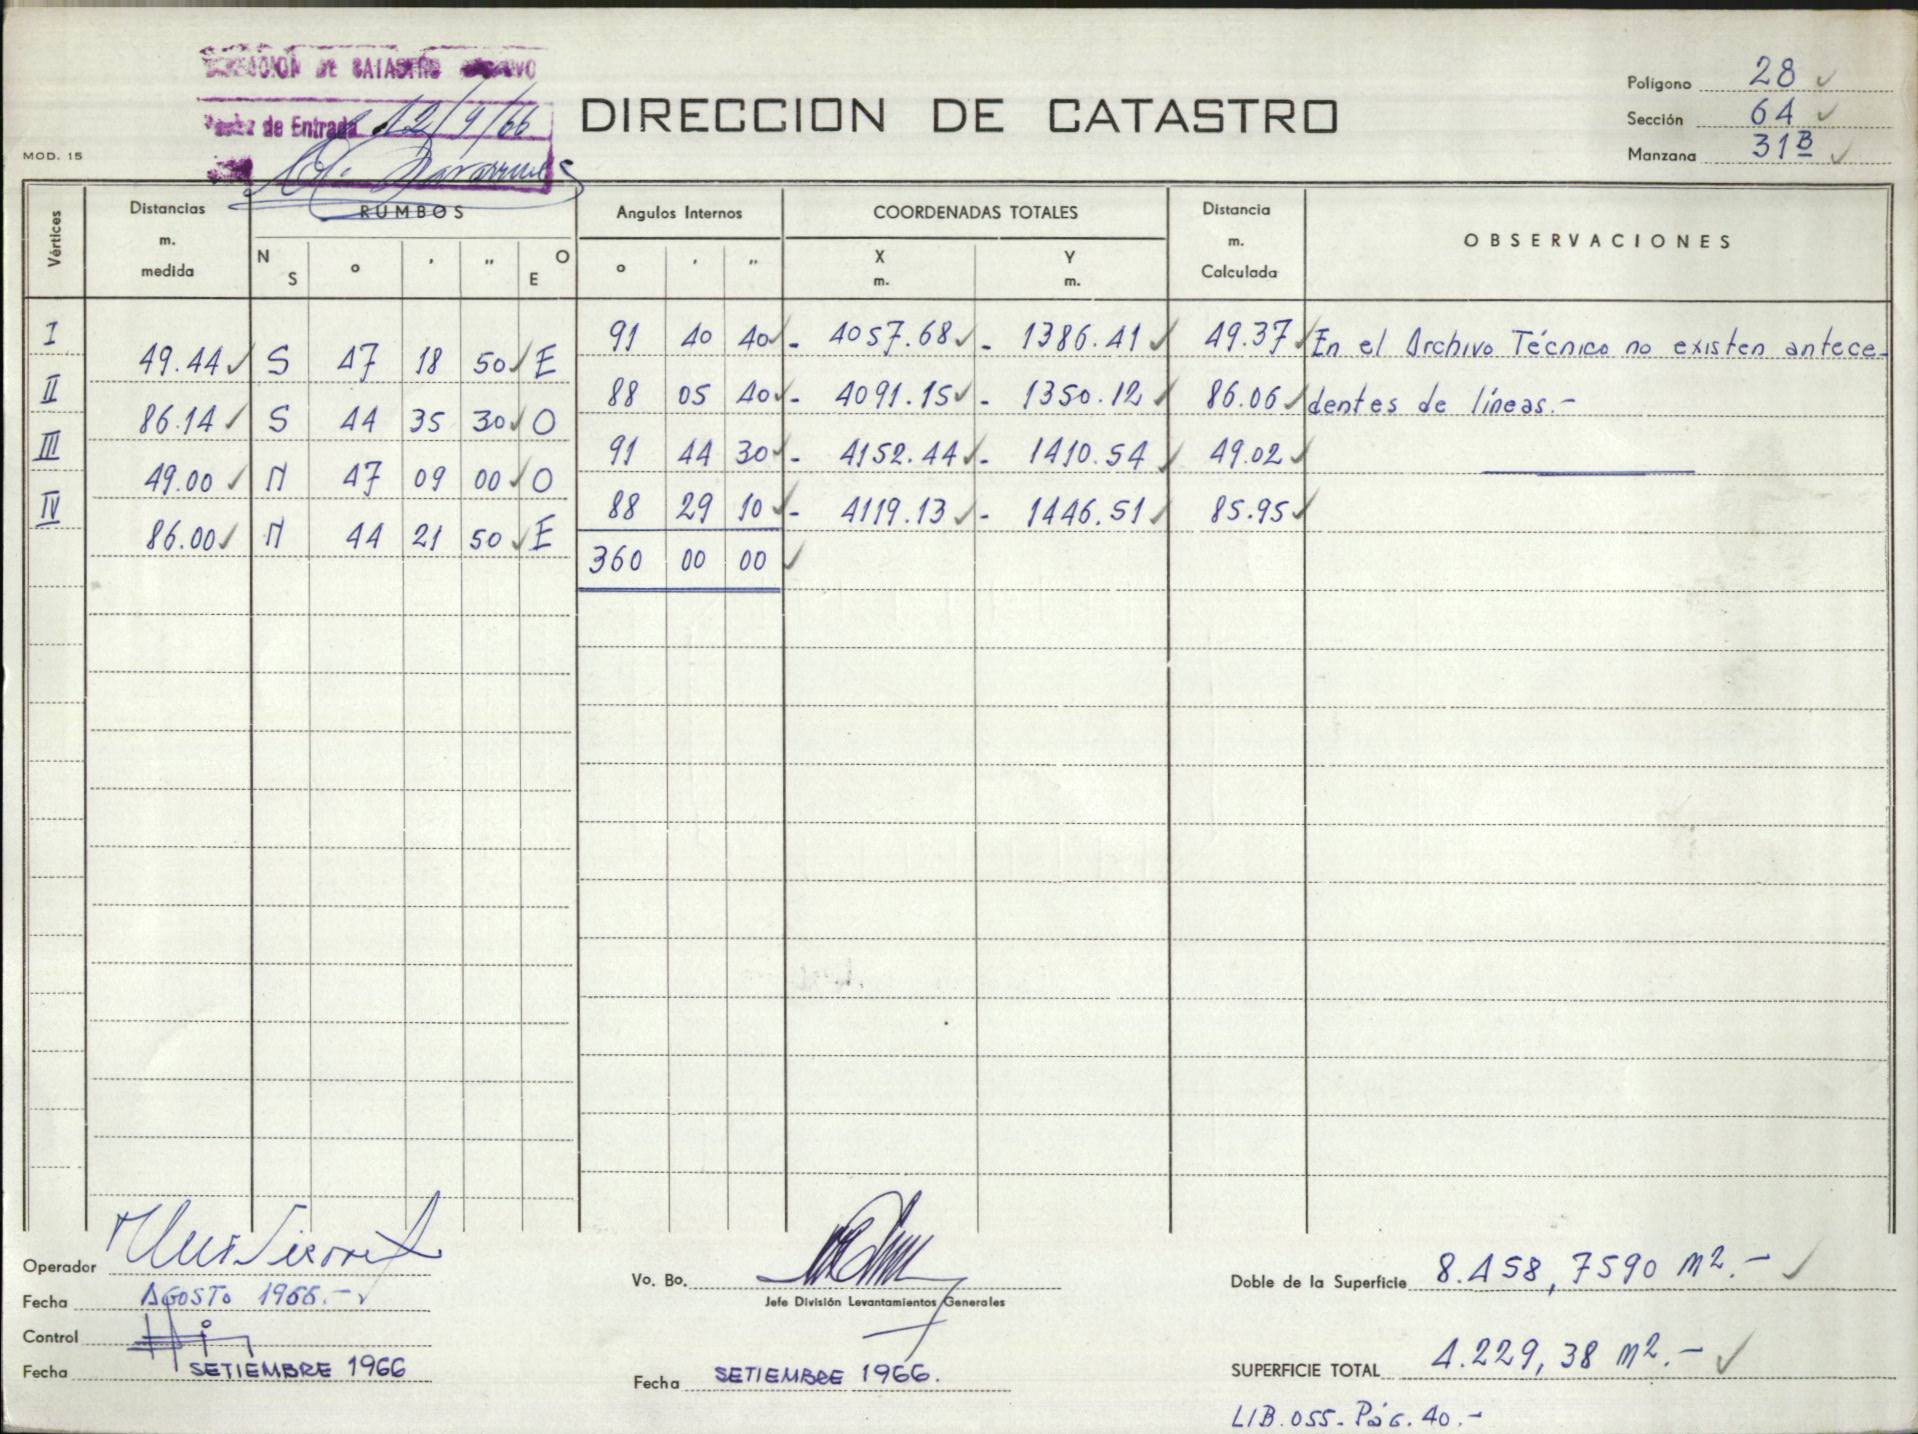 DIRECCION DE CATASTRO
de Entrada 12/9/66
DIRECCION DE CATASTRO
MOD. 15
Polígono 28
Sección 64
Manzana 31B
Vértices
Distancias m. medida
RUMBOS
N S ° ' " O E
Angulos Internos
° ' "
COORDENADAS TOTALES
X m. Y m.
Distancia m. Calculada
OBSERVACIONES
I 91 40 40 - 4057.68 - 1386.41 49.37 En el Archivo Técnico no existen antece-
49.44 S 47 18 50 E
II 88 05 40 - 4091.15 - 1350.12 86.06 dentes de líneas.-
86.14 S 44 35 30 O
III 91 44 30 - 4152.44 - 1410.54 49.02
49.00 N 47 09 00 O
IV 88 29 10 - 4119.13 - 1446.51 85.95
86.00 N 44 21 50 E
360 00 00
Operador
Fecha AGOSTO 1966.-
Control
Fecha SETIEMBRE 1966
Vo. Bo.
Jefe División Levantamientos Generales
Fecha SETIEMBRE 1966.
Doble de la Superficie 8.458,7590 m2.-
SUPERFICIE TOTAL 4.229,38 m2.-
LIB. 055. Pág. 40.-